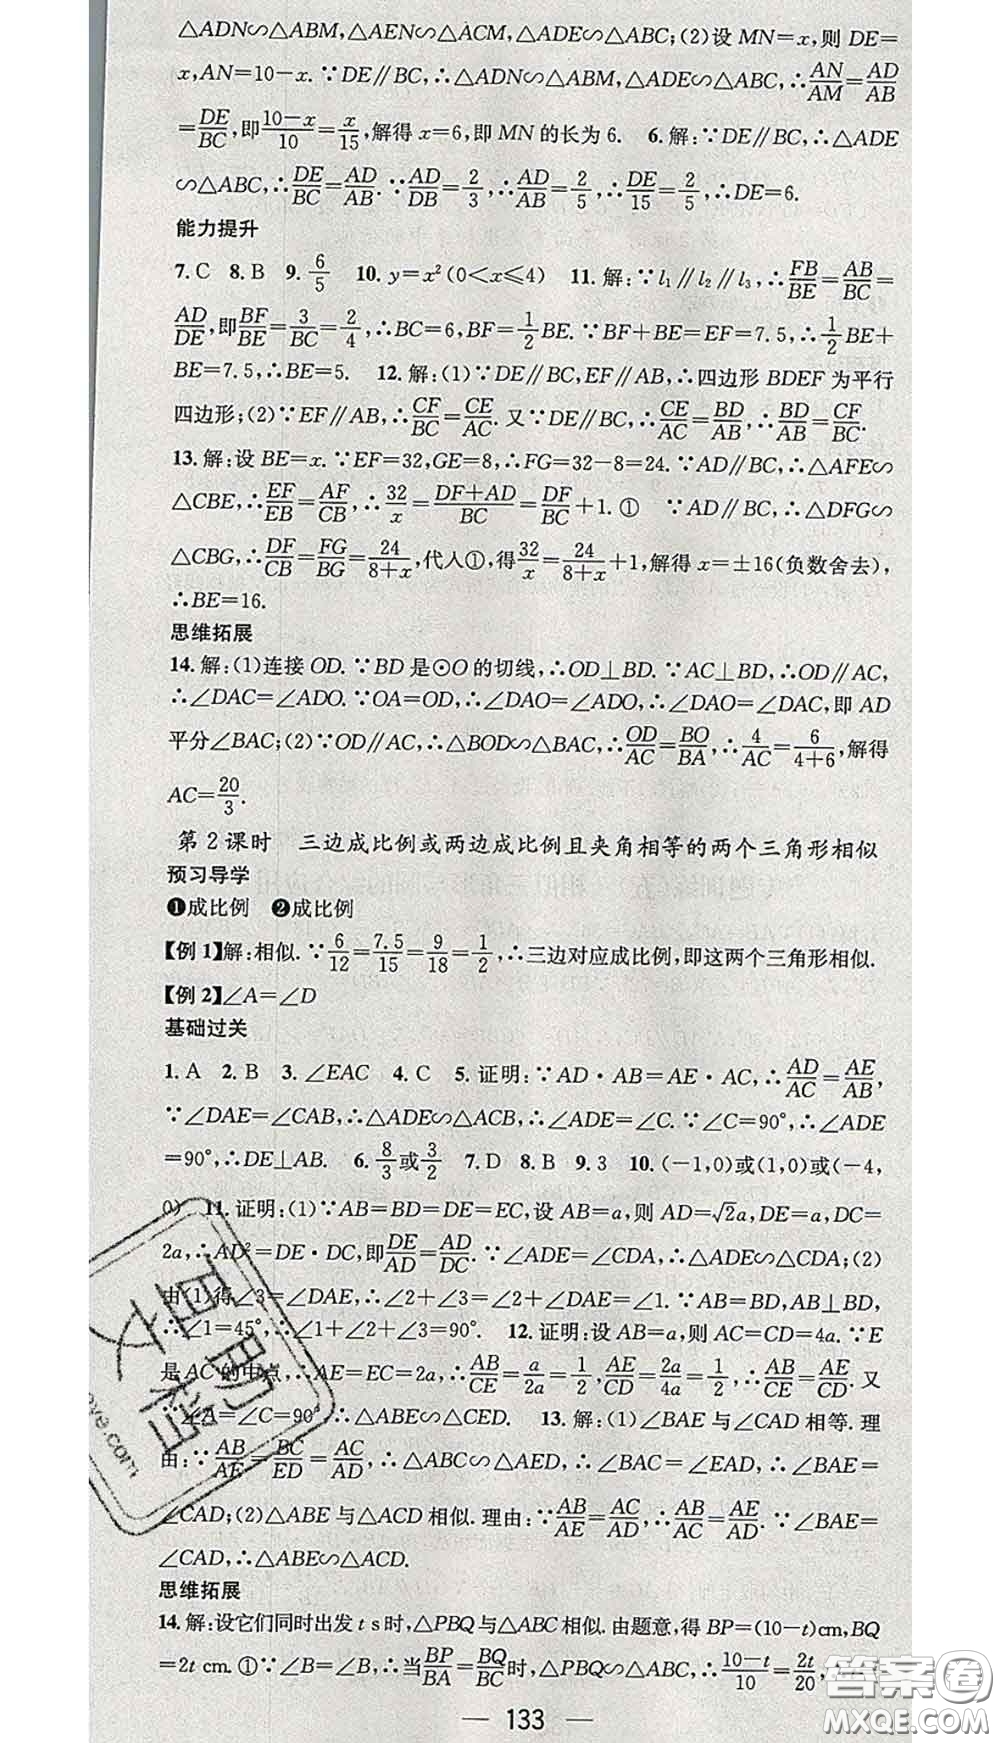 △ADN∽△ABM,△AEN∽△ACM,△ADE∽△ABC;(2)设 MN=x,则 DE=
x,AN=10-x.∵DE∥BC,∴△ADN∽△ABM,△ADE∽△ABC,∴AN/AM=AD/AB
=DE/BC,即(10-x)/10=x/15,解得 x=6,即 MN 的长为 6. 6.解:∵DE∥BC,∴△ADE
∽△ABC,∴DE/BC=AD/AB.∵AD/DB=2/3,∴AD/AB=2/5,∴DE/15=2/5,∴DE=6.
能力提升
7.C 8.B 9.6/5 10.y=x²(0<x≤4) 11.解:∵l₁∥l₂∥l₃,∴FB/BE=AB/BC=
AD/DE,即BF/BE=3/BC=2/4,∴BC=6,BF=1/2BE.∵BF+BE=EF=7.5,∴1/2BE+
BE=7.5,∴BE=5. 12.解:(1)∵DE∥BC,EF∥AB,∴四边形 BDEF 为平行
四边形;(2)∵EF∥AB,∴CF/BC=CE/AC.又∵DE∥BC,∴CE/AC=BD/AB,∴BD/AB=CF/BC.
13.解:设 BE=x.∵EF=32,GE=8,∴FG=32-8=24.∵AD∥BC,∴△AFE∽
△CBE,∴EF/EB=AF/CB,∴32/x=(DF+AD)/BC=DF/BC+1.① ∵AD∥BC,∴△DFG∽
△CBG,∴DF/CB=FG/BG=24/(8+x),代入①,得32/x=24/(8+x)+1,解得 x=±16(负数舍去),
∴BE=16.
思维拓展
14.解:(1)连接 OD.∵BD 是⊙O 的切线,∴OD⊥BD.∵AC⊥BD,∴OD∥AC,
∴∠DAC=∠ADO.∵OA=OD,∴∠DAO=∠ADO,∴∠DAO=∠DAC,即 AD
平分∠BAC;(2)∵OD∥AC,∴△BOD∽△BAC,∴OD/AC=BO/BA,∴4/AC=6/(4+6),解得
AC=20/3.
第 2 课时 三边成比例或两边成比例且夹角相等的两个三角形相似
预习导学
❶成比例 ❷成比例
【例 1】解:相似.∵6/12=7.5/15=9/18=1/2,∴三边对应成比例,即这两个三角形相似.
【例 2】∠A=∠D
基础过关
1.A 2.B 3.∠EAC 4.C 5.证明:∵AD·AB=AE·AC,∴AD/AC=AE/AB,
∵∠DAE=∠CAB,∴△ADE∽△ACB,∴∠ADE=∠C.∵∠C=90°,∴∠ADE
=90°,∴DE⊥AB. 6.8/3或3/2 7.D 8.B 9.3 10.(-1,0)或(1,0)或(-4,
0) 11.证明:(1)∵AB=BD=DE=EC,设 AB=a,则 AD=√2a,DE=a,DC=
2a,∴AD²=DE·DC,即DE/AD=AD/DC.∵∠ADE=∠CDA,∴△ADE∽△CDA;(2)
由(1)得∠3=∠DAE,∴∠2+∠3=∠2+∠DAE=∠1.∵AB=BD,AB⊥BD,
∴∠1=45°,∴∠1+∠2+∠3=90°. 12.证明:设 AB=a,则 AC=CD=4a.∵E
是 AC 的中点,∴AE=EC=2a,∴AB/CE=a/2a=1/2,AE/CD=2a/4a=1/2,∴AB/CE=AE/CD.又
∵∠A=∠C=90°,∴△ABE∽△CED. 13.解:(1)∠BAE 与∠CAD 相等.理
由:∵AB/AE=BC/ED=AC/AD,∴△ABC∽△AED,∴∠BAC=∠EAD,∴∠BAE=
∠CAD;(2)△ABE 与△ACD 相似.理由:∵AB/AE=AC/AD,∴AB/AC=AE/AD.∵∠BAE=
∠CAD,∴△ABE∽△ACD.
思维拓展
14.解:设它们同时出发 t s时,△PBQ与△ABC相似.由题意,得 BP=(10-t)cm,BQ
=2t cm.①∵∠B=∠B,∴当BP/BA=BQ/BC时,△PBQ∽△ABC,∴(10-t)/10=2t/20,
133
答案圈
MXQE.COM